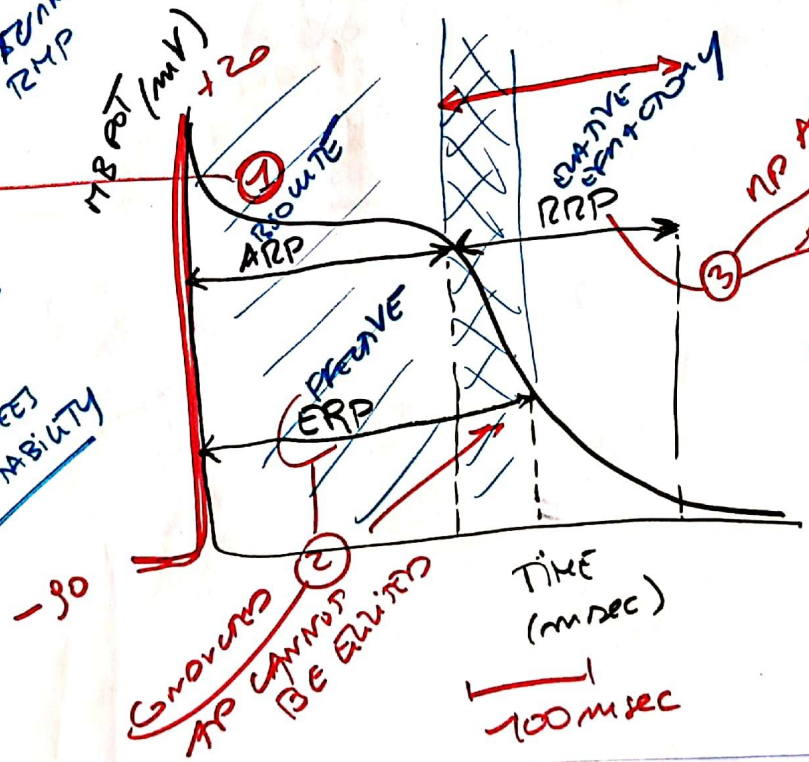 RMP
MB POT (mV)
+20
1
ABSOLUTE
ARP
RELATIVE
REFRACTORY
RRP
3
EFFECTIVE
ERP
ABILITY
2
-90
CONDUCTED
AP CANNOT
BE ELICITED
TIME
(msec)
100 msec